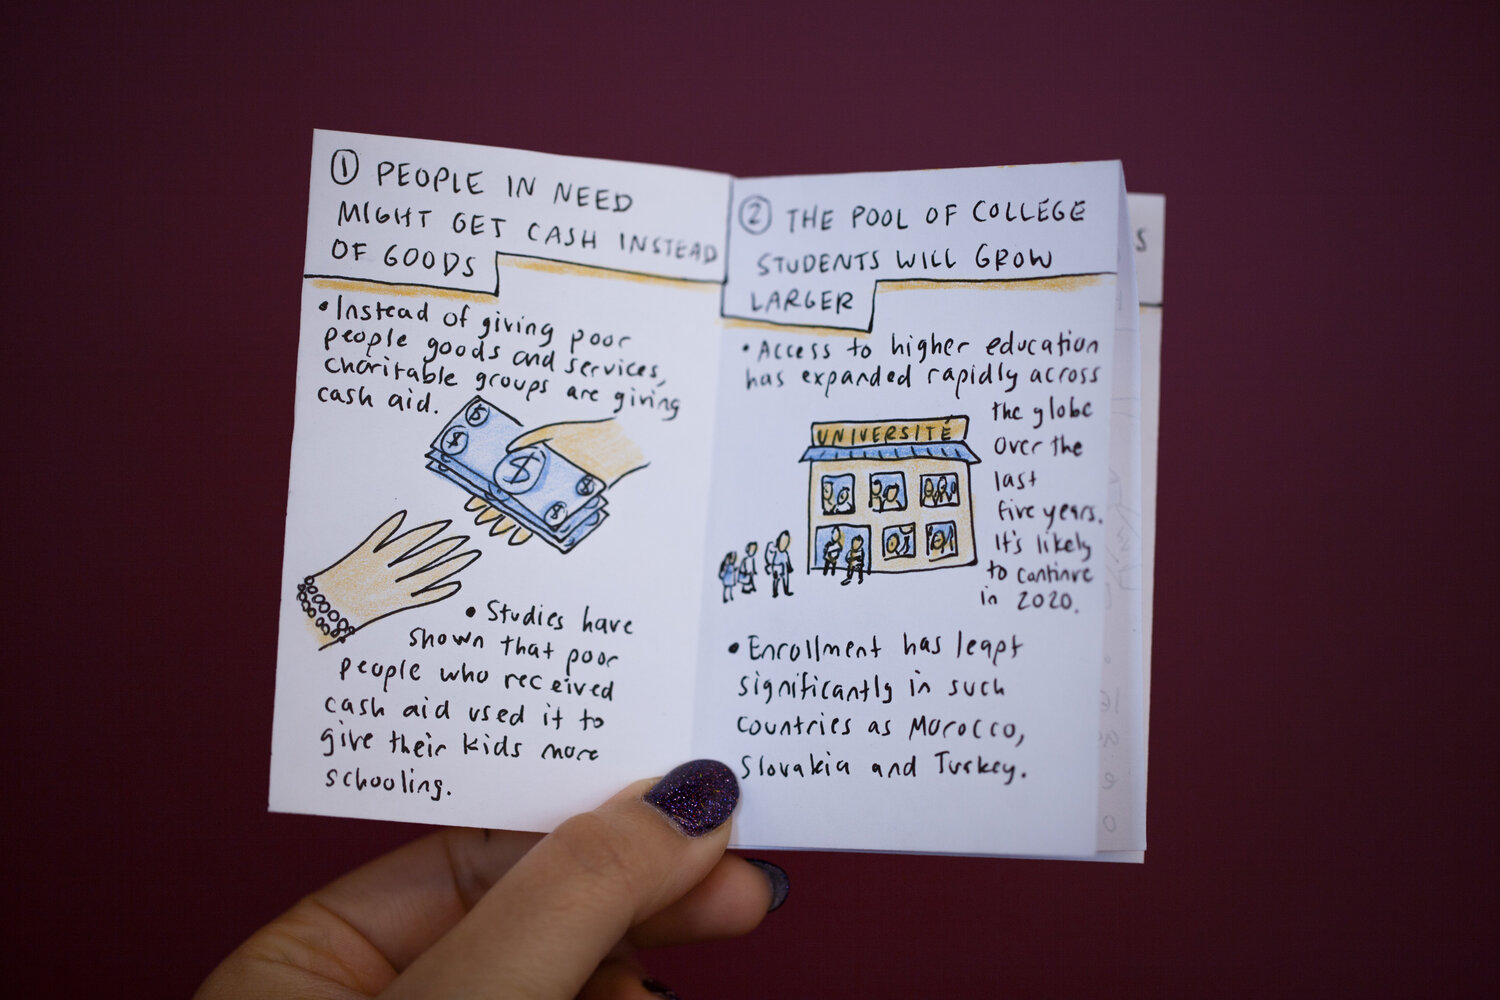 ① PEOPLE IN NEED
MIGHT GET CASH INSTEAD
OF GOODS
• Instead of giving poor
people goods and services,
charitable groups are giving
cash aid.
$
$
$
$
$
• Studies have
shown that poor
people who received
cash aid used it to
give their kids more
schooling.
② THE POOL OF COLLEGE
STUDENTS WILL GROW
LARGER
• Access to higher education
has expanded rapidly across
the globe
over the
last
five years.
It's likely
to continue
in 2020.
UNIVERSITÉ
• Enrollment has leapt
significantly in such
countries as Morocco,
Slovakia and Turkey.
S